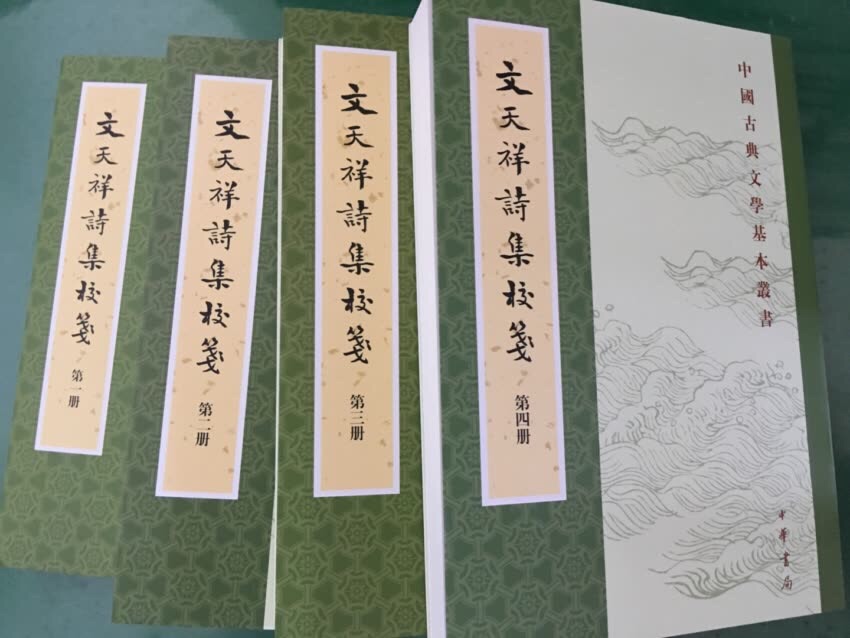 文天祥詩集校箋
第一册
文天祥詩集校箋
第二册
文天祥詩集校箋
第三册
文天祥詩集校箋
第四册
中國古典文學基本叢書
中華書局